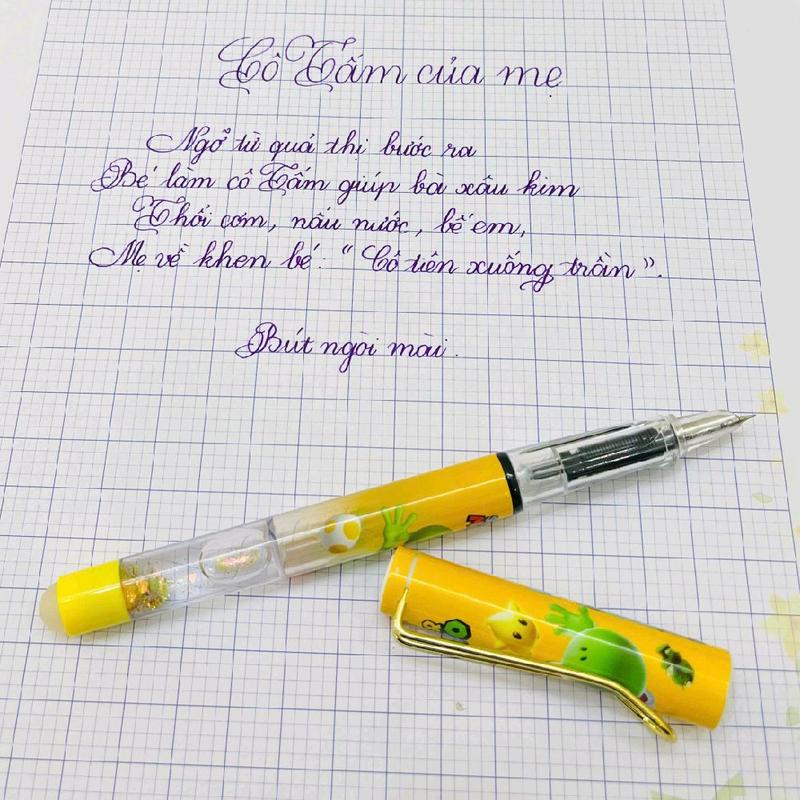 Cô Tấm của mẹ
Ngỡ từ quả thị bước ra
Bé làm cô Tấm giúp bà xâu kim
Thổi cơm, nấu nước, bế em,
Mẹ về khen bé: “Cô tiên xuống trần”.
Bút ngòi mài.